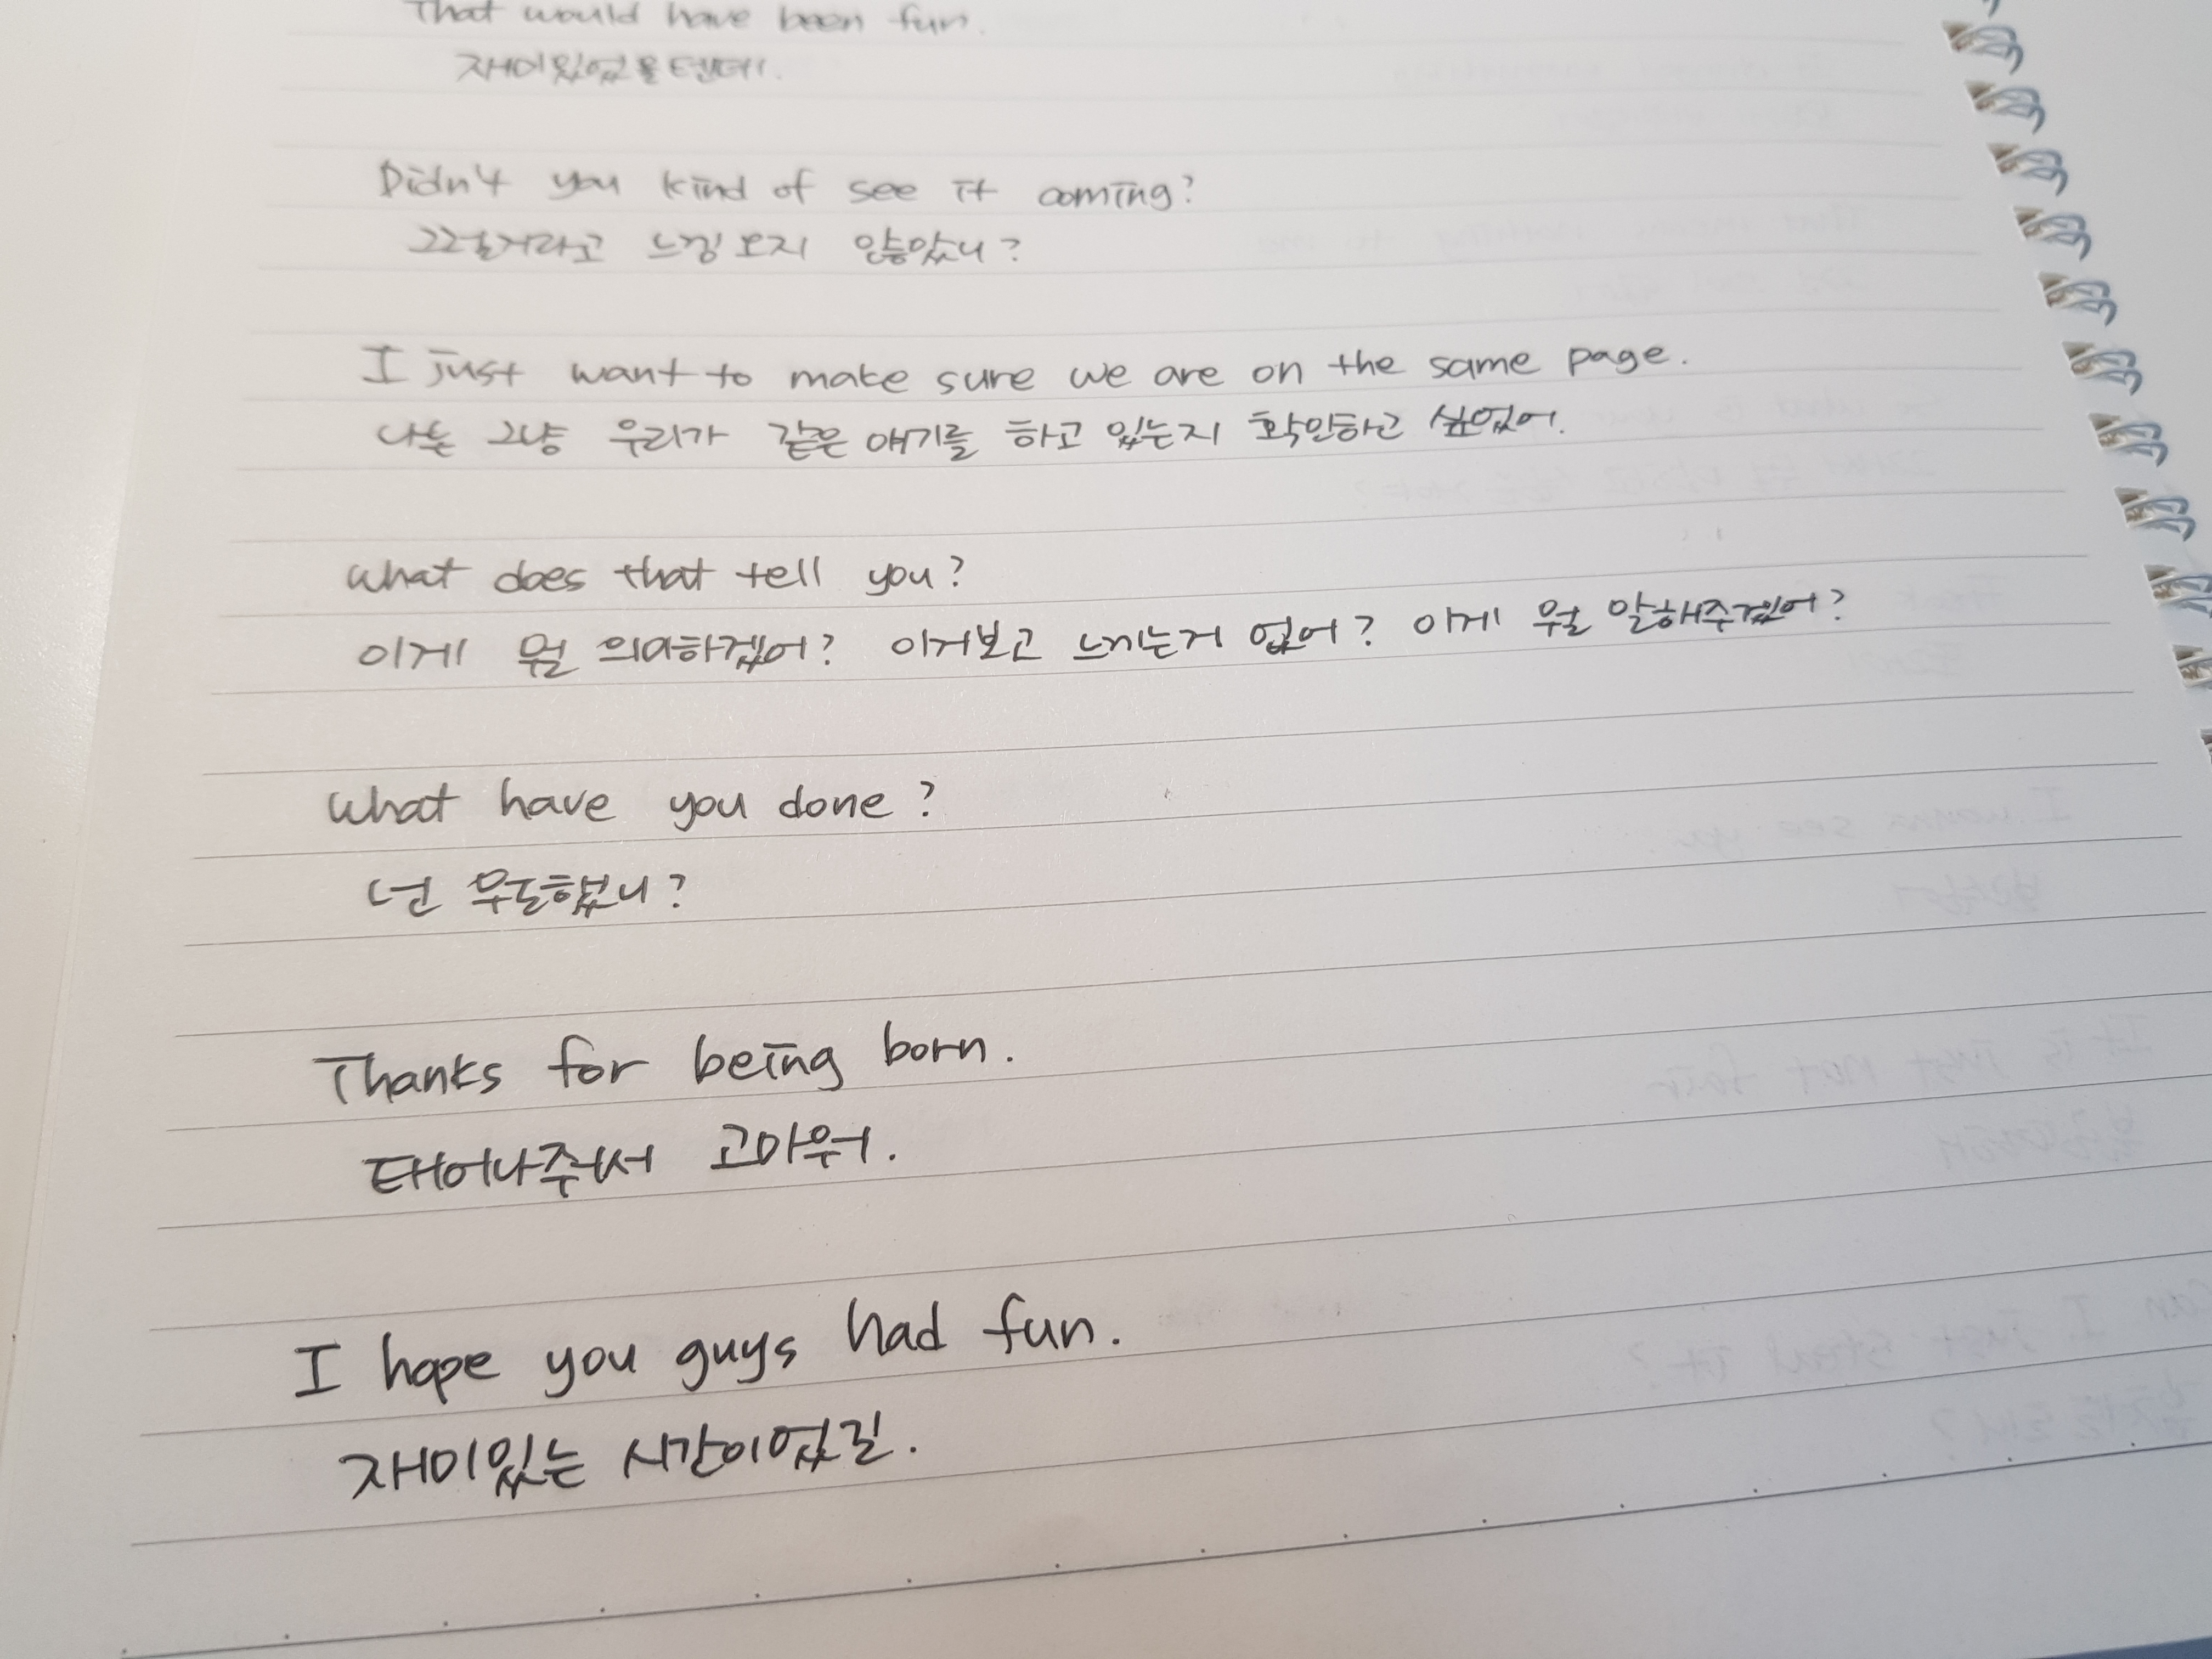 That would have been fun.
재미있었을텐데.
Didn't you kind of see it coming?
그럴거라고 느낌 오지 않았니?
I just want to make sure we are on the same page.
나는 그냥 우리가 같은 얘기를 하고 있는지 확인하고 싶었어.
What does that tell you?
이게 뭘 의미하겠어? 이거보고 느끼는거 없어? 이게 뭘 말해주겠어?
What have you done?
넌 무슨했니?
Thanks for being born.
태어나줘서 고마워.
I hope you guys had fun.
재미있는 시간이었길.